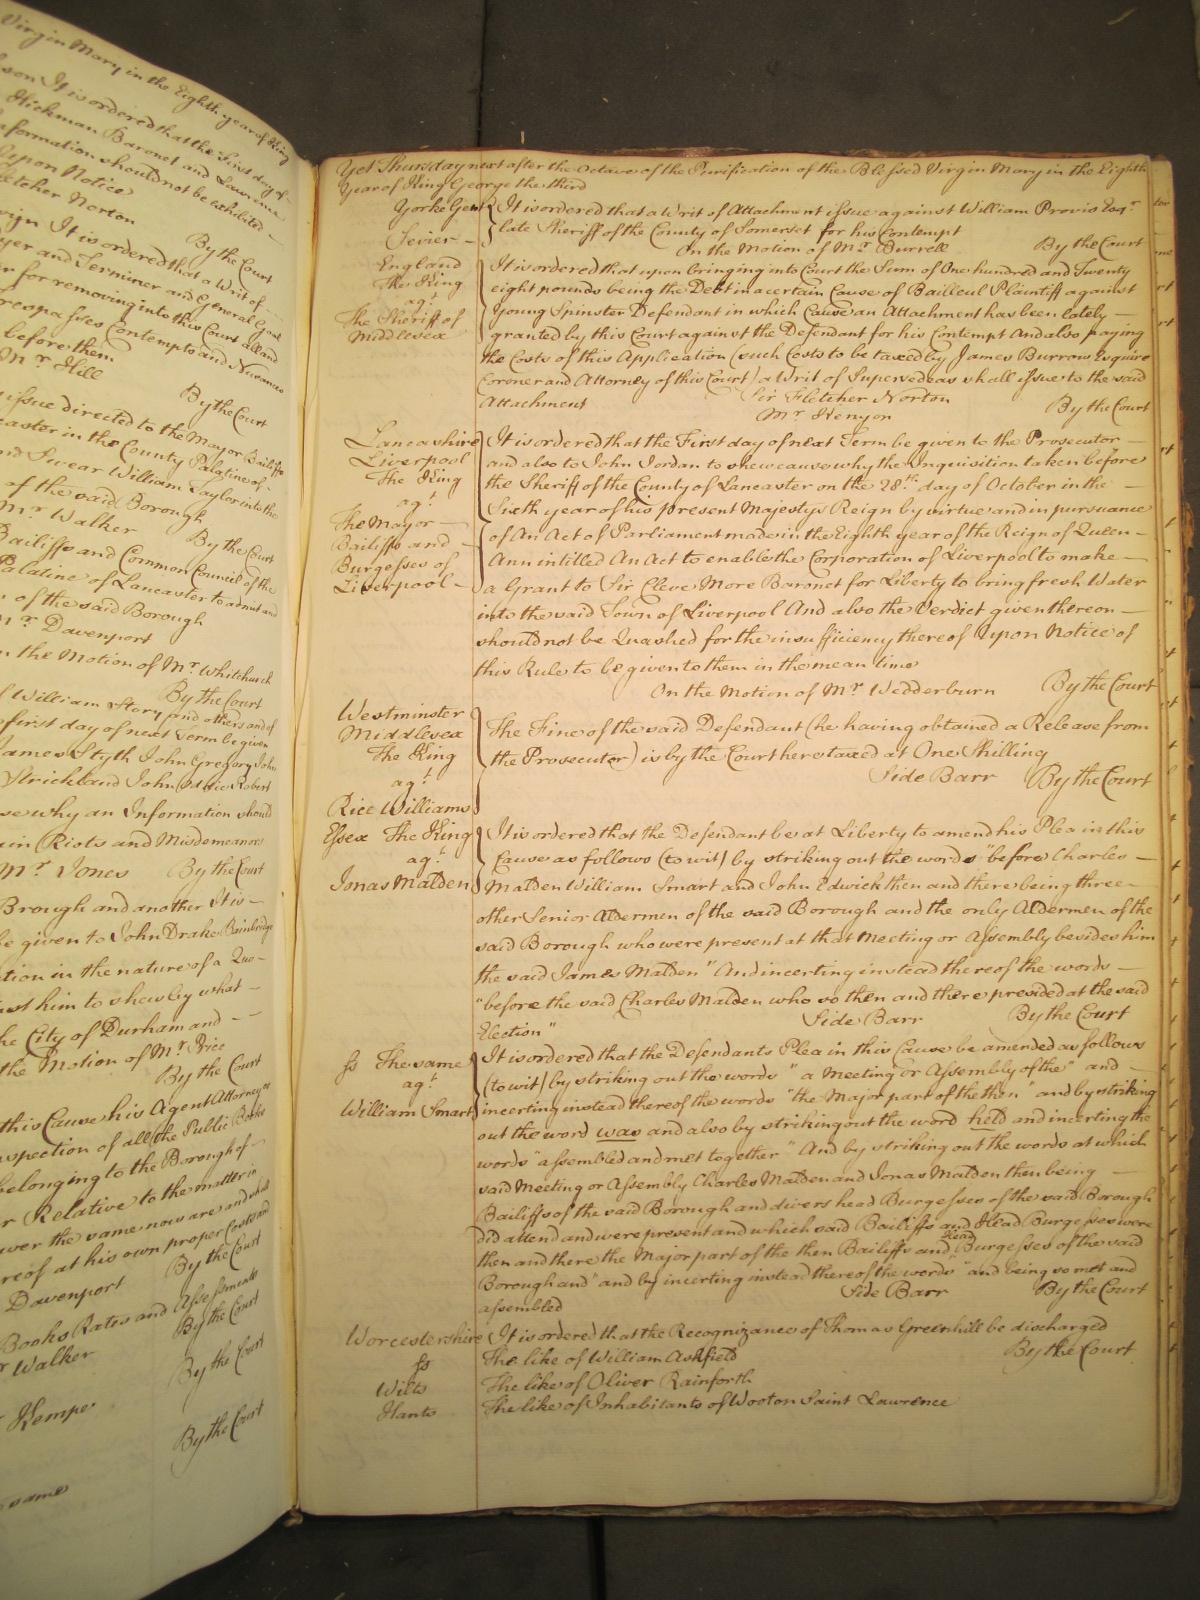 Virgin Mary in the Eighth year of King
son It is ordered that the First day of
Hickman Baronet and Lawrence
formation should not be exhibited
upon Notice
Fletcher Norton
By the Court
It is ordered that a Writ of
yer and Terminer and General Gaol
for removing into this Court all and
Trespasses Contempts and Nusances
before them
Mr. Hill
By the Court
issue directed to the Mayor Bailiffs
caster in the County Palatine of
and Swear William Taylor into the
of the said Borough
Mr. Walker
By the Court
Bailiffs and Common Council of the
Palatine of Lancaster to admit and
of the said Borough
Mr. Davenport
the Motion of Mr. Whitchurch
By the Court
William Story and others and of
first day of next Term be given
James Styth John Gregory John
Strickland John Robert
se why an Information should
ain Riots and Misdemeanors
Mr. Jones By the Court
Brough and another It is
be given to John Drake Bainbridge
ation in the nature of a Quo
nst him to shew by what
the City of Durham and
the Motion of Mr. Price
By the Court
this Cause his Agent Attorney or
inspection of all the Public Books
belonging to the Borough of
or Relative to the matter in
over the same now are and shall
reof at his own proper Costs and
Davenport By the Court
Books Rates and Assessments
By the Court
Walker
By the Court
Kempe
By the Court
same
Yet Thursday next after the Octave of the Purification of the Blessed Virgin Mary in the Eighth
Year of King George the third
Yorke Gent It is ordered that a Writ of Attachment issue against William Provis Esqr.
Sevier late Sheriff of the County of Somerset for his Contempt
On the Motion of Mr. Burrell By the Court
England It is ordered that upon bringing into Court the Sum of One hundred and Twenty
The King eight pounds being the Debt in a certain Cause of Bailleul Plaintiff against
agt.
The Sheriff of Young Spinster Defendant in which Cause an Attachment has been lately
Middlesex granted by this Court against the Defendant for his Contempt And also paying
the Costs of this Application (such Costs to be taxed by James Burrow Esquire
Coroner and Attorney of this Court) a Writ of Supersedeas shall issue to the said
Attachment Sir Fletcher Norton By the Court
Mr. Kenyon
Lancashire It is ordered that the First day of next Term be given to the Prosecutor
Liverpool and also to John Jordan to shew cause why the Inquisition taken before
The King the Sheriff of the County of Lancaster on the 28th. day of October in the
agt. Sixth year of his present Majestys Reign by virtue and in pursuance
The Mayor of An Act of Parliament made in the Eighth year of the Reign of Queen
Bailiffs and Ann intitled An Act to enable the Corporation of Liverpool to make
Burgesses of
Liverpool a Grant to Sir Cleve More Baronet for Liberty to bring fresh Water
into the said Town of Liverpool And also the Verdict given thereon
should not be Quashed for the insufficiency thereof Upon Notice of
this Rule to be given to them in the mean time
On the Motion of Mr. Wedderburn By the Court
Westminster
Middlesex The Fine of the said Defendant (he having obtained a Release from
The King the Prosecutor) is by the Court here taxed at One Shilling
agt. Side Barr By the Court
Rice Williams
Essex The King It is ordered that the Defendant be at Liberty to amend his Plea in this
agt. Cause as follows (to wit) by striking out the words "before Charles
Jonas Malden Malden William Smart and John Edwick then and there being three
other Senior Aldermen of the said Borough and the only Aldermen of the
said Borough who were present at that Meeting or Assembly besides him
the said James Malden" And incerting instead thereof the words
"before the said Charles Malden who so then and there presided at the said
Election" Side Barr By the Court
ss The same It is ordered that the Defendants Plea in this Cause be amended as follows
agt. (to wit) by striking out the words "a Meeting or Assembly of the" and
William Smart incerting instead thereof the words "the Major part of the then" and by striking
out the word was and also by striking out the word held and incerting the
words "assembled and met together" And by striking out the words at which
said Meeting or Assembly Charles Malden and Jonas Malden then being
Bailiffs of the said Borough and divers head Burgesses of the said Borough
did attend and were present and which said Bailiffs and Head Burgesses were
then and there the Major part of the then Bailiffs and Head Burgesses of the said
Borough and" and by incerting instead thereof the words "and being so met and
assembled Side Barr By the Court
Worcestershire It is ordered that the Recognizance of Thomas Greenhill be discharged
ss The like of William Ashfield By the Court
Wilts The like of Oliver Rainforth
Hants The like of Inhabitants of Wooton Saint Lawrence